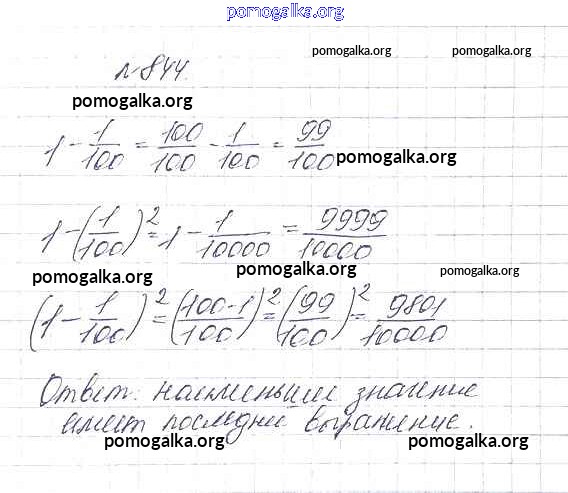 pomogalka.org
pomogalka.org pomogalka.org
№844.
pomogalka.org
1 - 1/100 = 100/100 - 1/100 = 99/100
pomogalka.org
1 - (1/100)² = 1 - 1/10000 = 9999/10000
pomogalka.org pomogalka.org pomogalka.org
(1 - 1/100)² = (100-1/100)² = (99/100)² = 9801/10000
Ответ: наименьшее значение
имеет последнее выражение.
pomogalka.org pomogalka.org